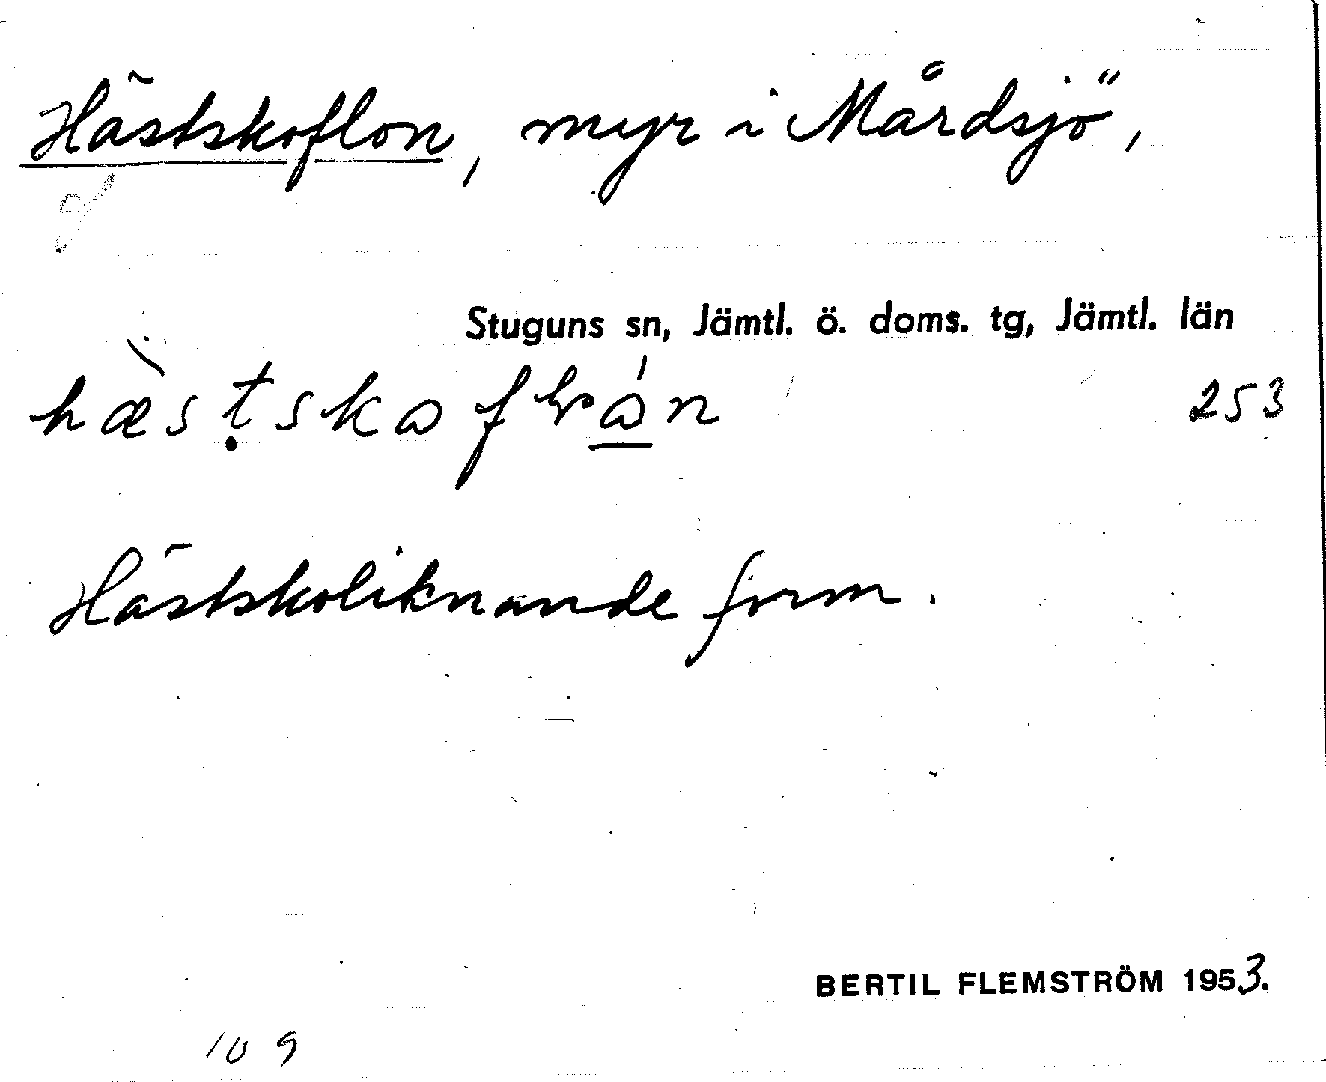 Hästskoflon, myr i Mårdsjö,
Stuguns sn, Jämtl. ö. doms. tg, Jämtl. län
253
Hästskoliknande form.
BERTIL FLEMSTRÖM 1953.
109